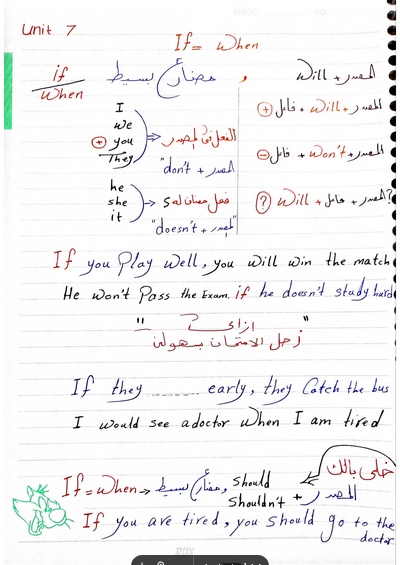 Unit 7
If = When
if / When مضارع بسيط , will + المصدر
I
we
you
They
+
الفعل في المصدر
"don't + المصدر
he
she
it
فعل مضاف له s
"doesn't + المصدر"
+ فاعل + will + المصدر
- فاعل + won't + المصدر
? Will + فاعل + المصدر?
If you Play well, you will win the match
He won't Pass the Exam. if he doesn't study hard
" إزاي "
نحل الامتحان بسهولة
If they ........ early, they Catch the bus
I would see a doctor When I am tired
خلي بالك
If = When → مضارع بسيط, should
shouldn't + المصدر
If you are tired, you should go to the
doctor